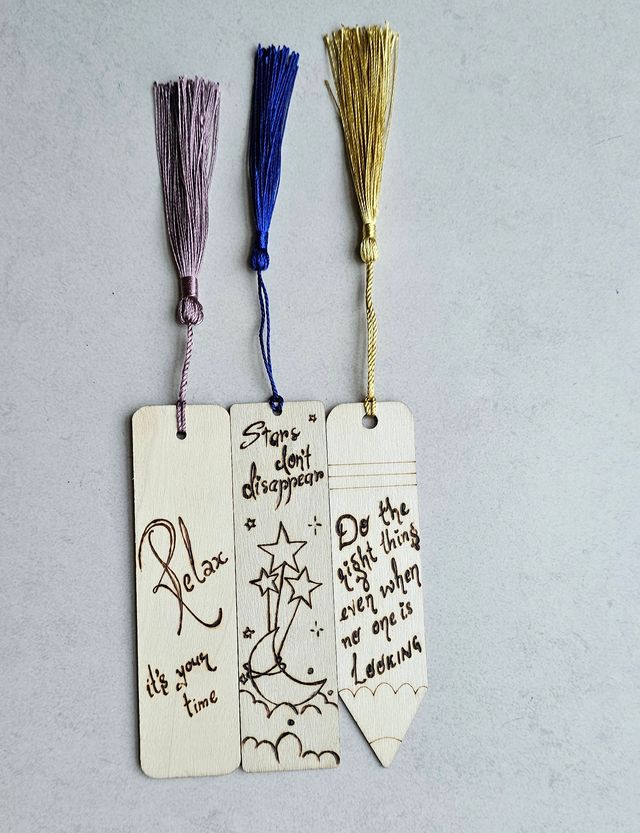 Relax
it's your
time
Stars
don't
disappear
Do the
right thing
even when
no one is
LOOKING